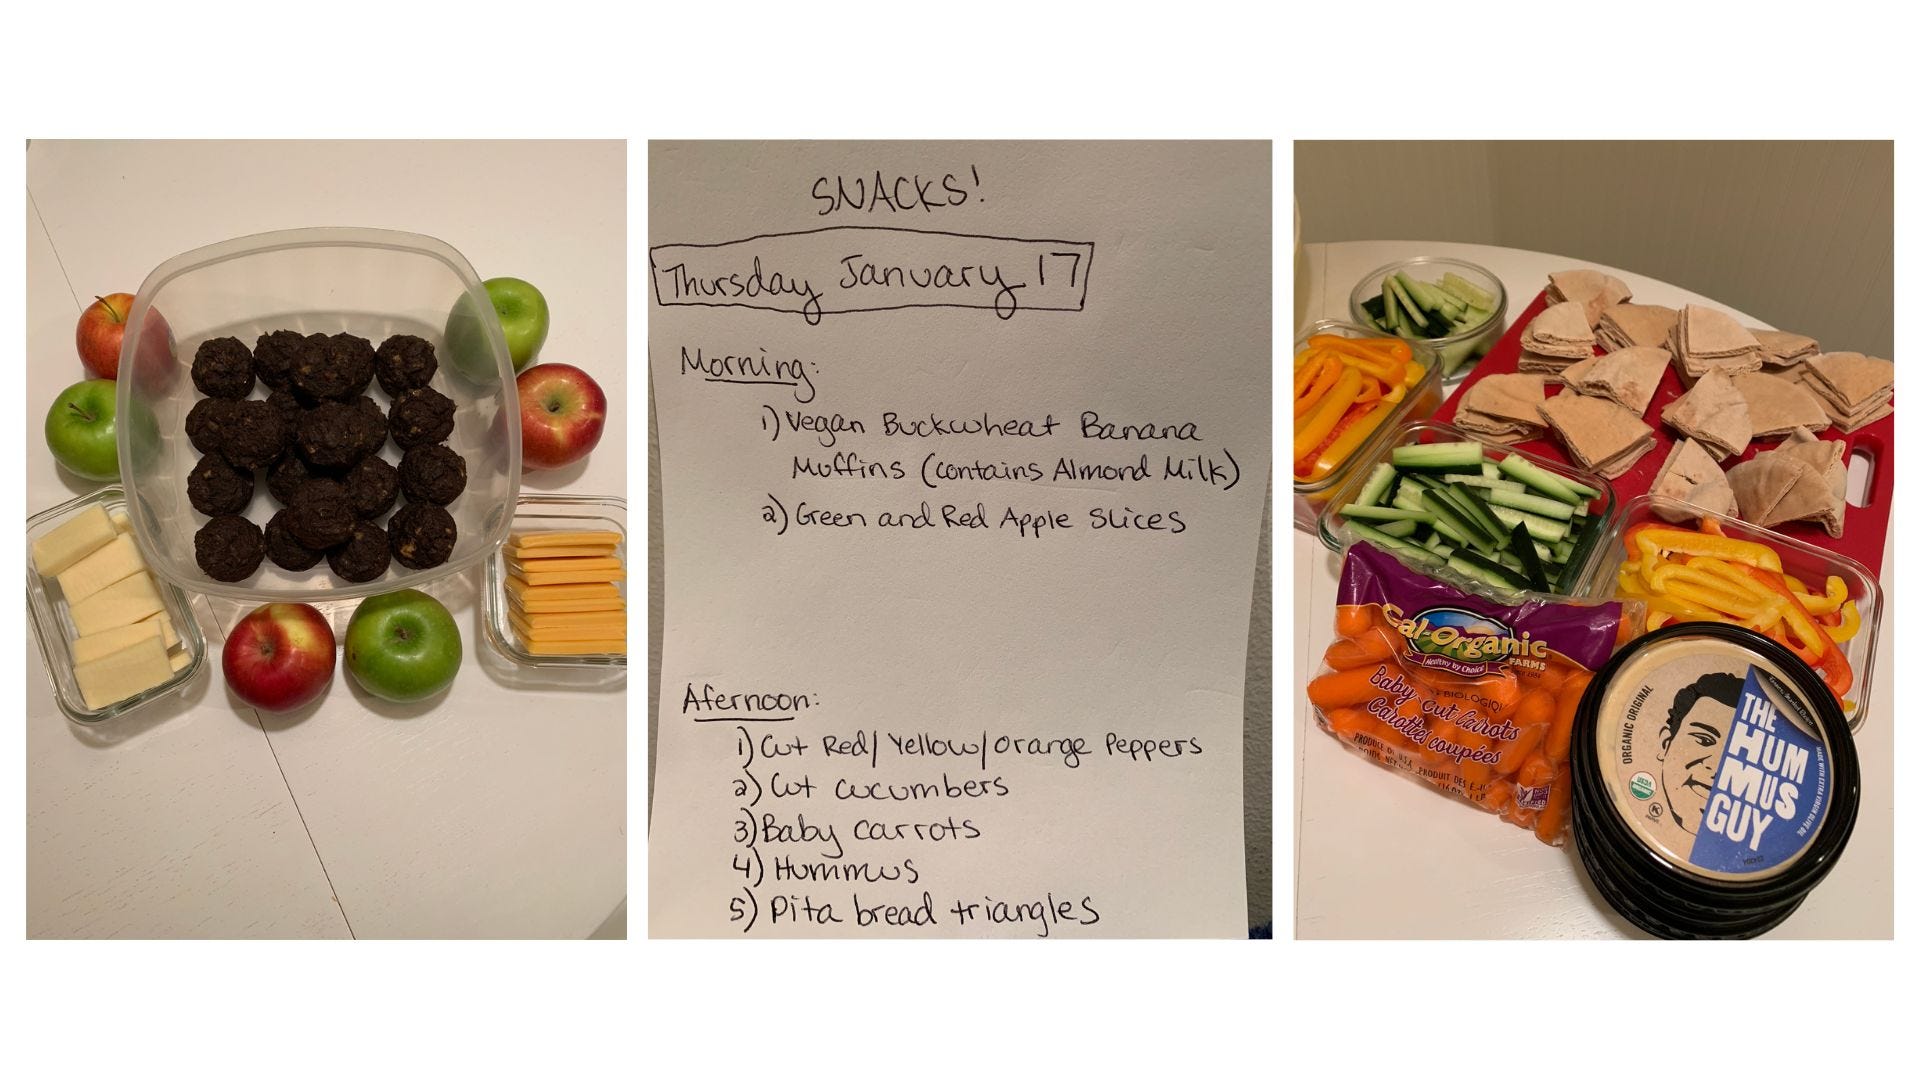 SNACKS!
Thursday January 17
Morning:
1) Vegan Buckwheat Banana
Muffins (contains Almond Milk)
2) Green and Red Apple Slices
Afernoon:
1) Cut Red/Yellow/Orange Peppers
2) Cut cucumbers
3) Baby carrots
4) Hummus
5) Pita bread triangles
Cal-Organic
FARMS
Healthy by Choice
Since 1984
BIOLOGIQ
Baby-Cut Carrots
Carottes coupées
PRODUCE OF U.S.A.
PRODUIT DES É.-U.
ORGANIC ORIGINAL
USDA
ORGANIC
K
THE
HUM
MUS
GUY
MADE WITH EXTRA VIRGIN OLIVE OIL